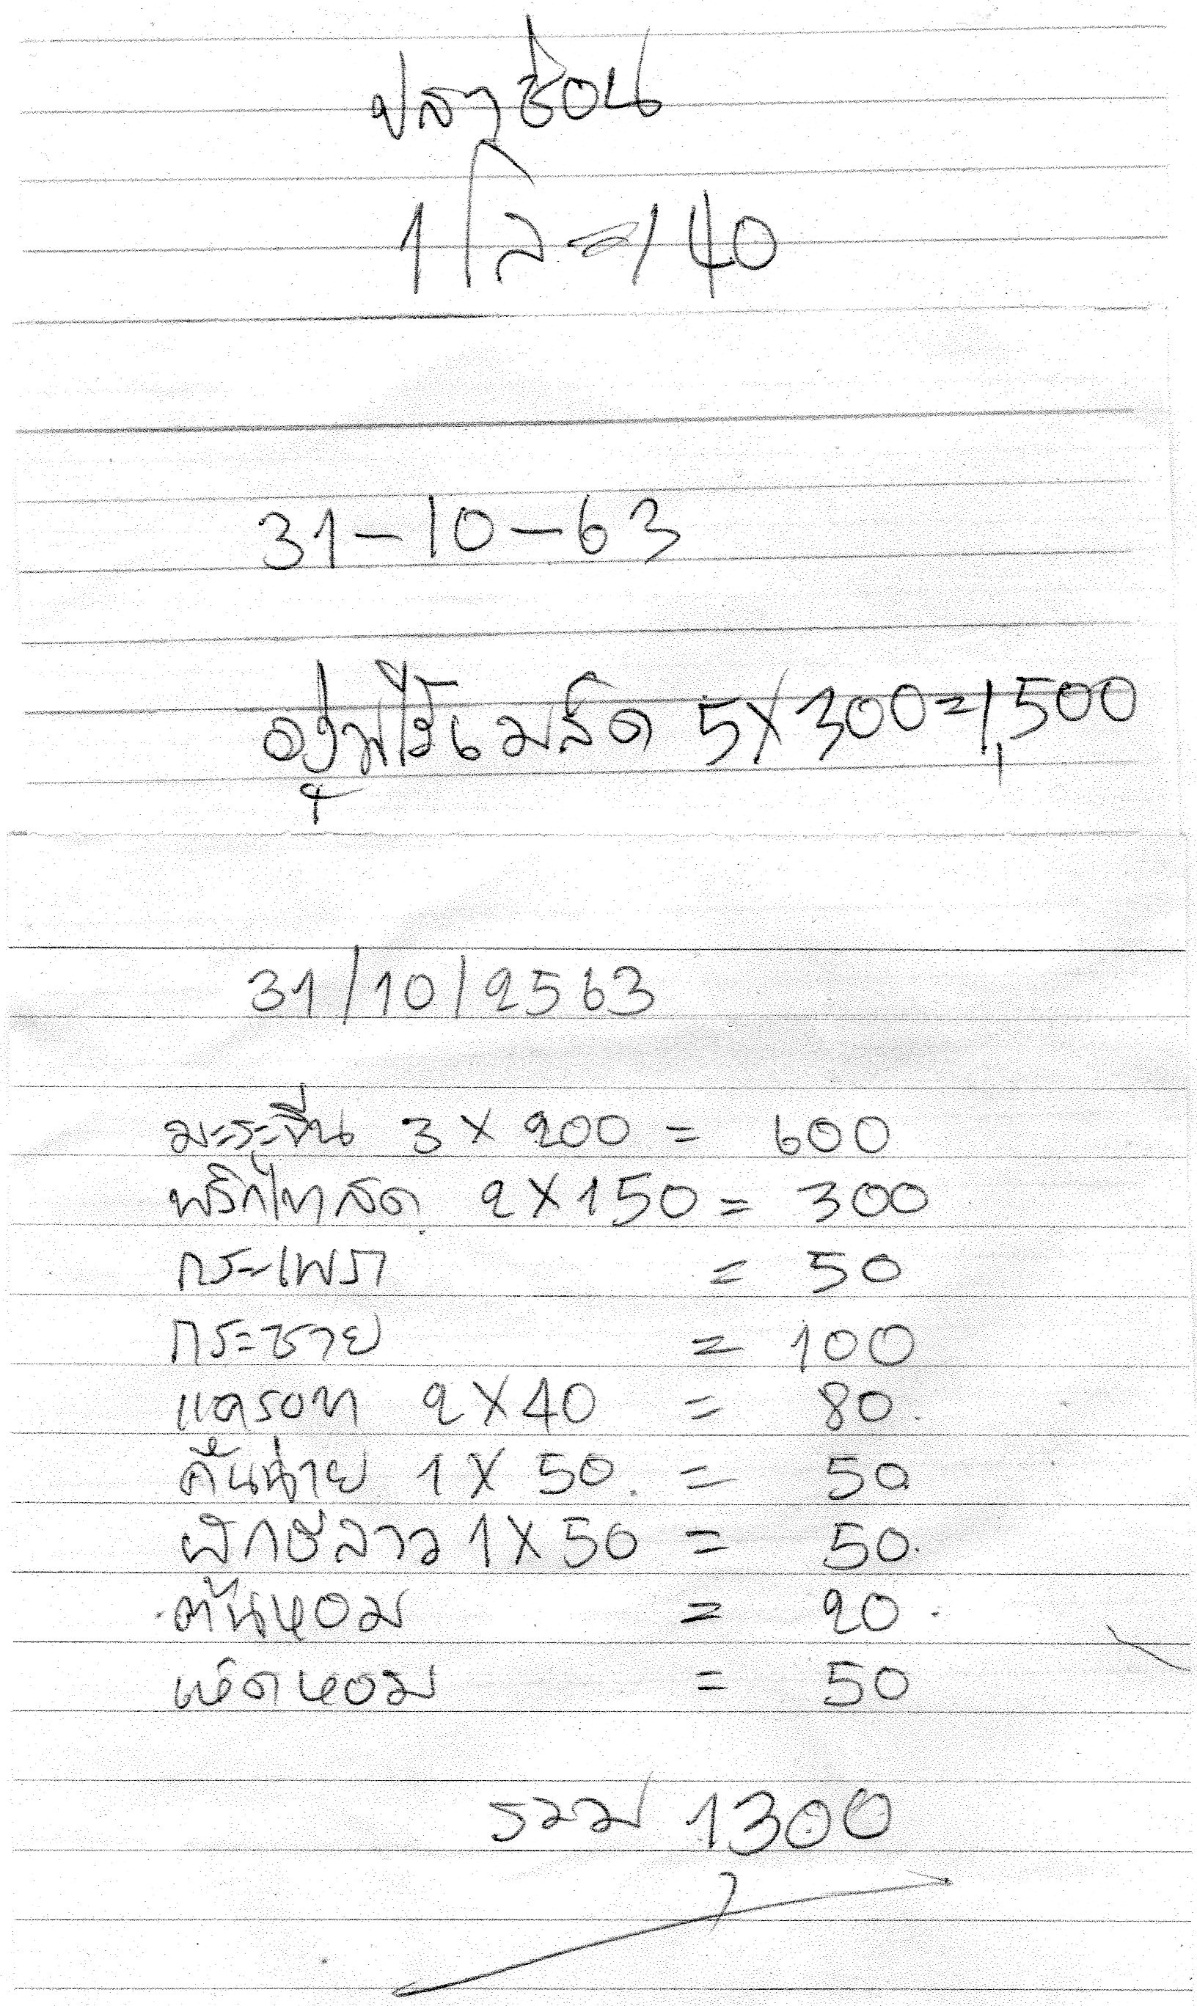 ปลาช่อน
1 โล = 140
31-10-63
องุ่นไร้เมล็ด 5X300=1,500
31/10/2563
มะระจีน 3 X 200 = 600
พริกไทสด 2X150 = 300
กระเพรา = 50
กระชาย = 100
แครอท 2X40 = 80.
คึ่นฉ่าย 1 X 50. = 50
ผักชีลาว 1X50 = 50.
ต้นหอม = 20.
เห็ดหอม = 50
รวม 1,300